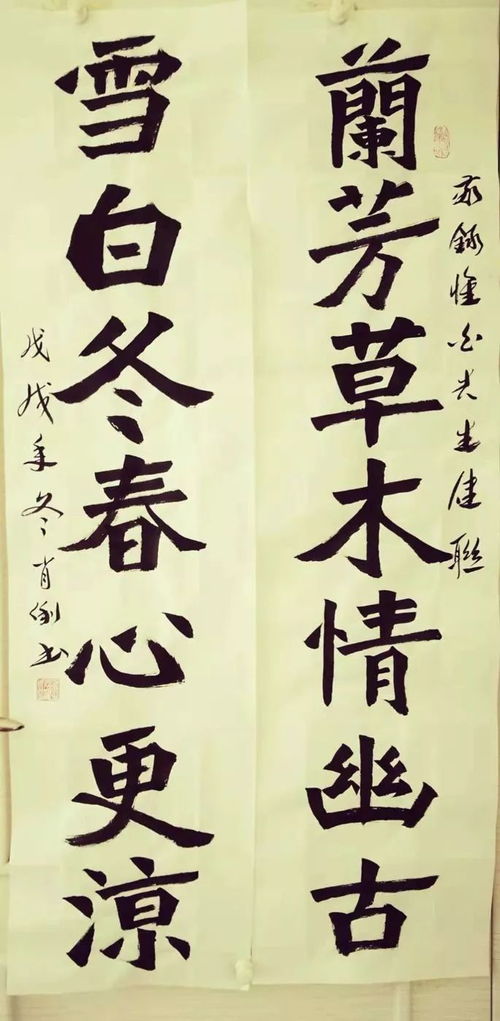 蘭芳草木情幽古
敬錄白先生佳聯
雪白冬春心更涼
戊戌年冬肖书